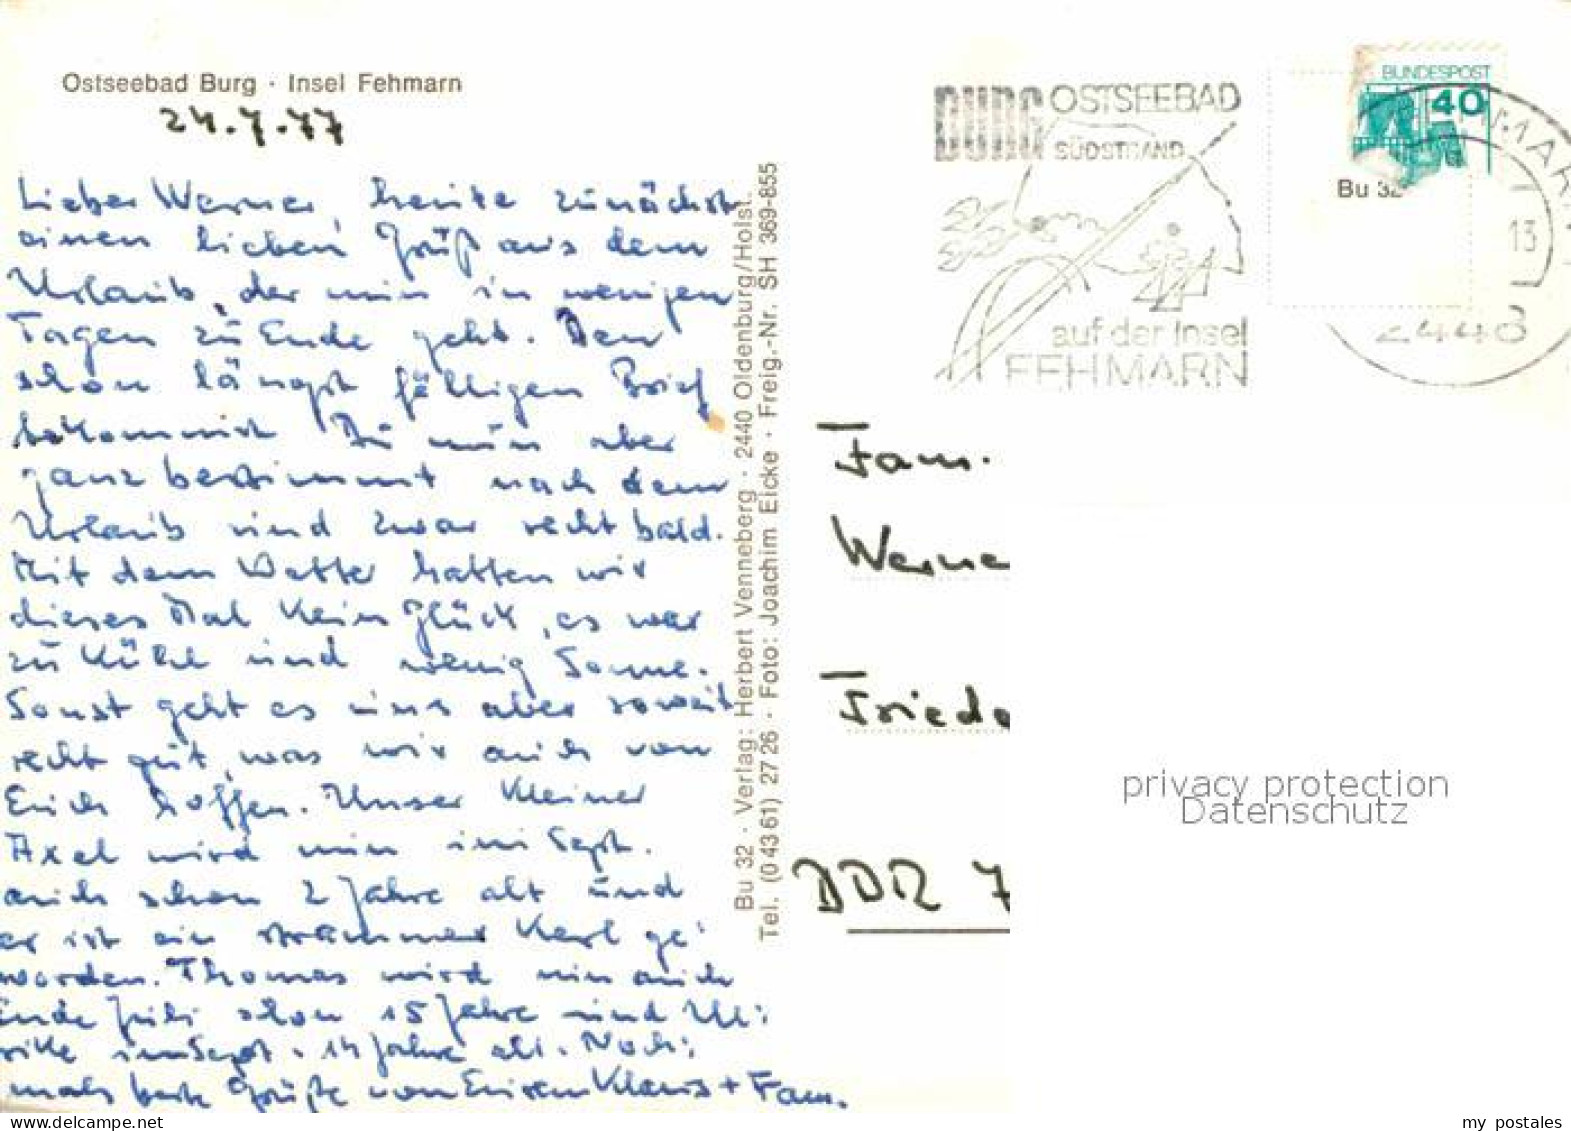 Ostseebad Burg · Insel Fehmarn
24.7.77
Lieber Werner, heute zunächst
einen lieben Gruß aus dem
Urlaub, der nun in wenigen
Tagen zu Ende geht. Den
schon längst fälligen Brief
bekommst Du nun aber
ganz bestimmt nach dem
Urlaub und zwar recht bald.
Mit dem Wetter hatten wir
dieses Mal kein Glück, es war
zu kühl und wenig Sonne.
Sonst geht es uns aber soweit
recht gut, was wir auch von
Euch hoffen. Unser kleiner
Axel wird nun im Sept.
auch schon 2 Jahre alt und
er ist ein strammer Kerl ge-
worden. Thomas wird nun auch
Ende Juli schon 15 Jahre und Ul-
rike im Sept. 14 Jahre alt. Noch-
mals beste Grüße von Eurem Klaus + Fam.
Bu 32 · Verlag: Herbert Venneberg · 2440 Oldenburg/Holst.
Tel. (0 43 61) 27 26 · Foto: Joachim Eicke · Freig.-Nr. SH 369-855
BURG OSTSEEBAD
SÜDSTRAND
auf der Insel
FEHMARN
BUNDESPOST
40
Bu 32
MARN
13
2448
Fam.
Werne
Friede
DDR 7
privacy protection
Datenschutz
my postales